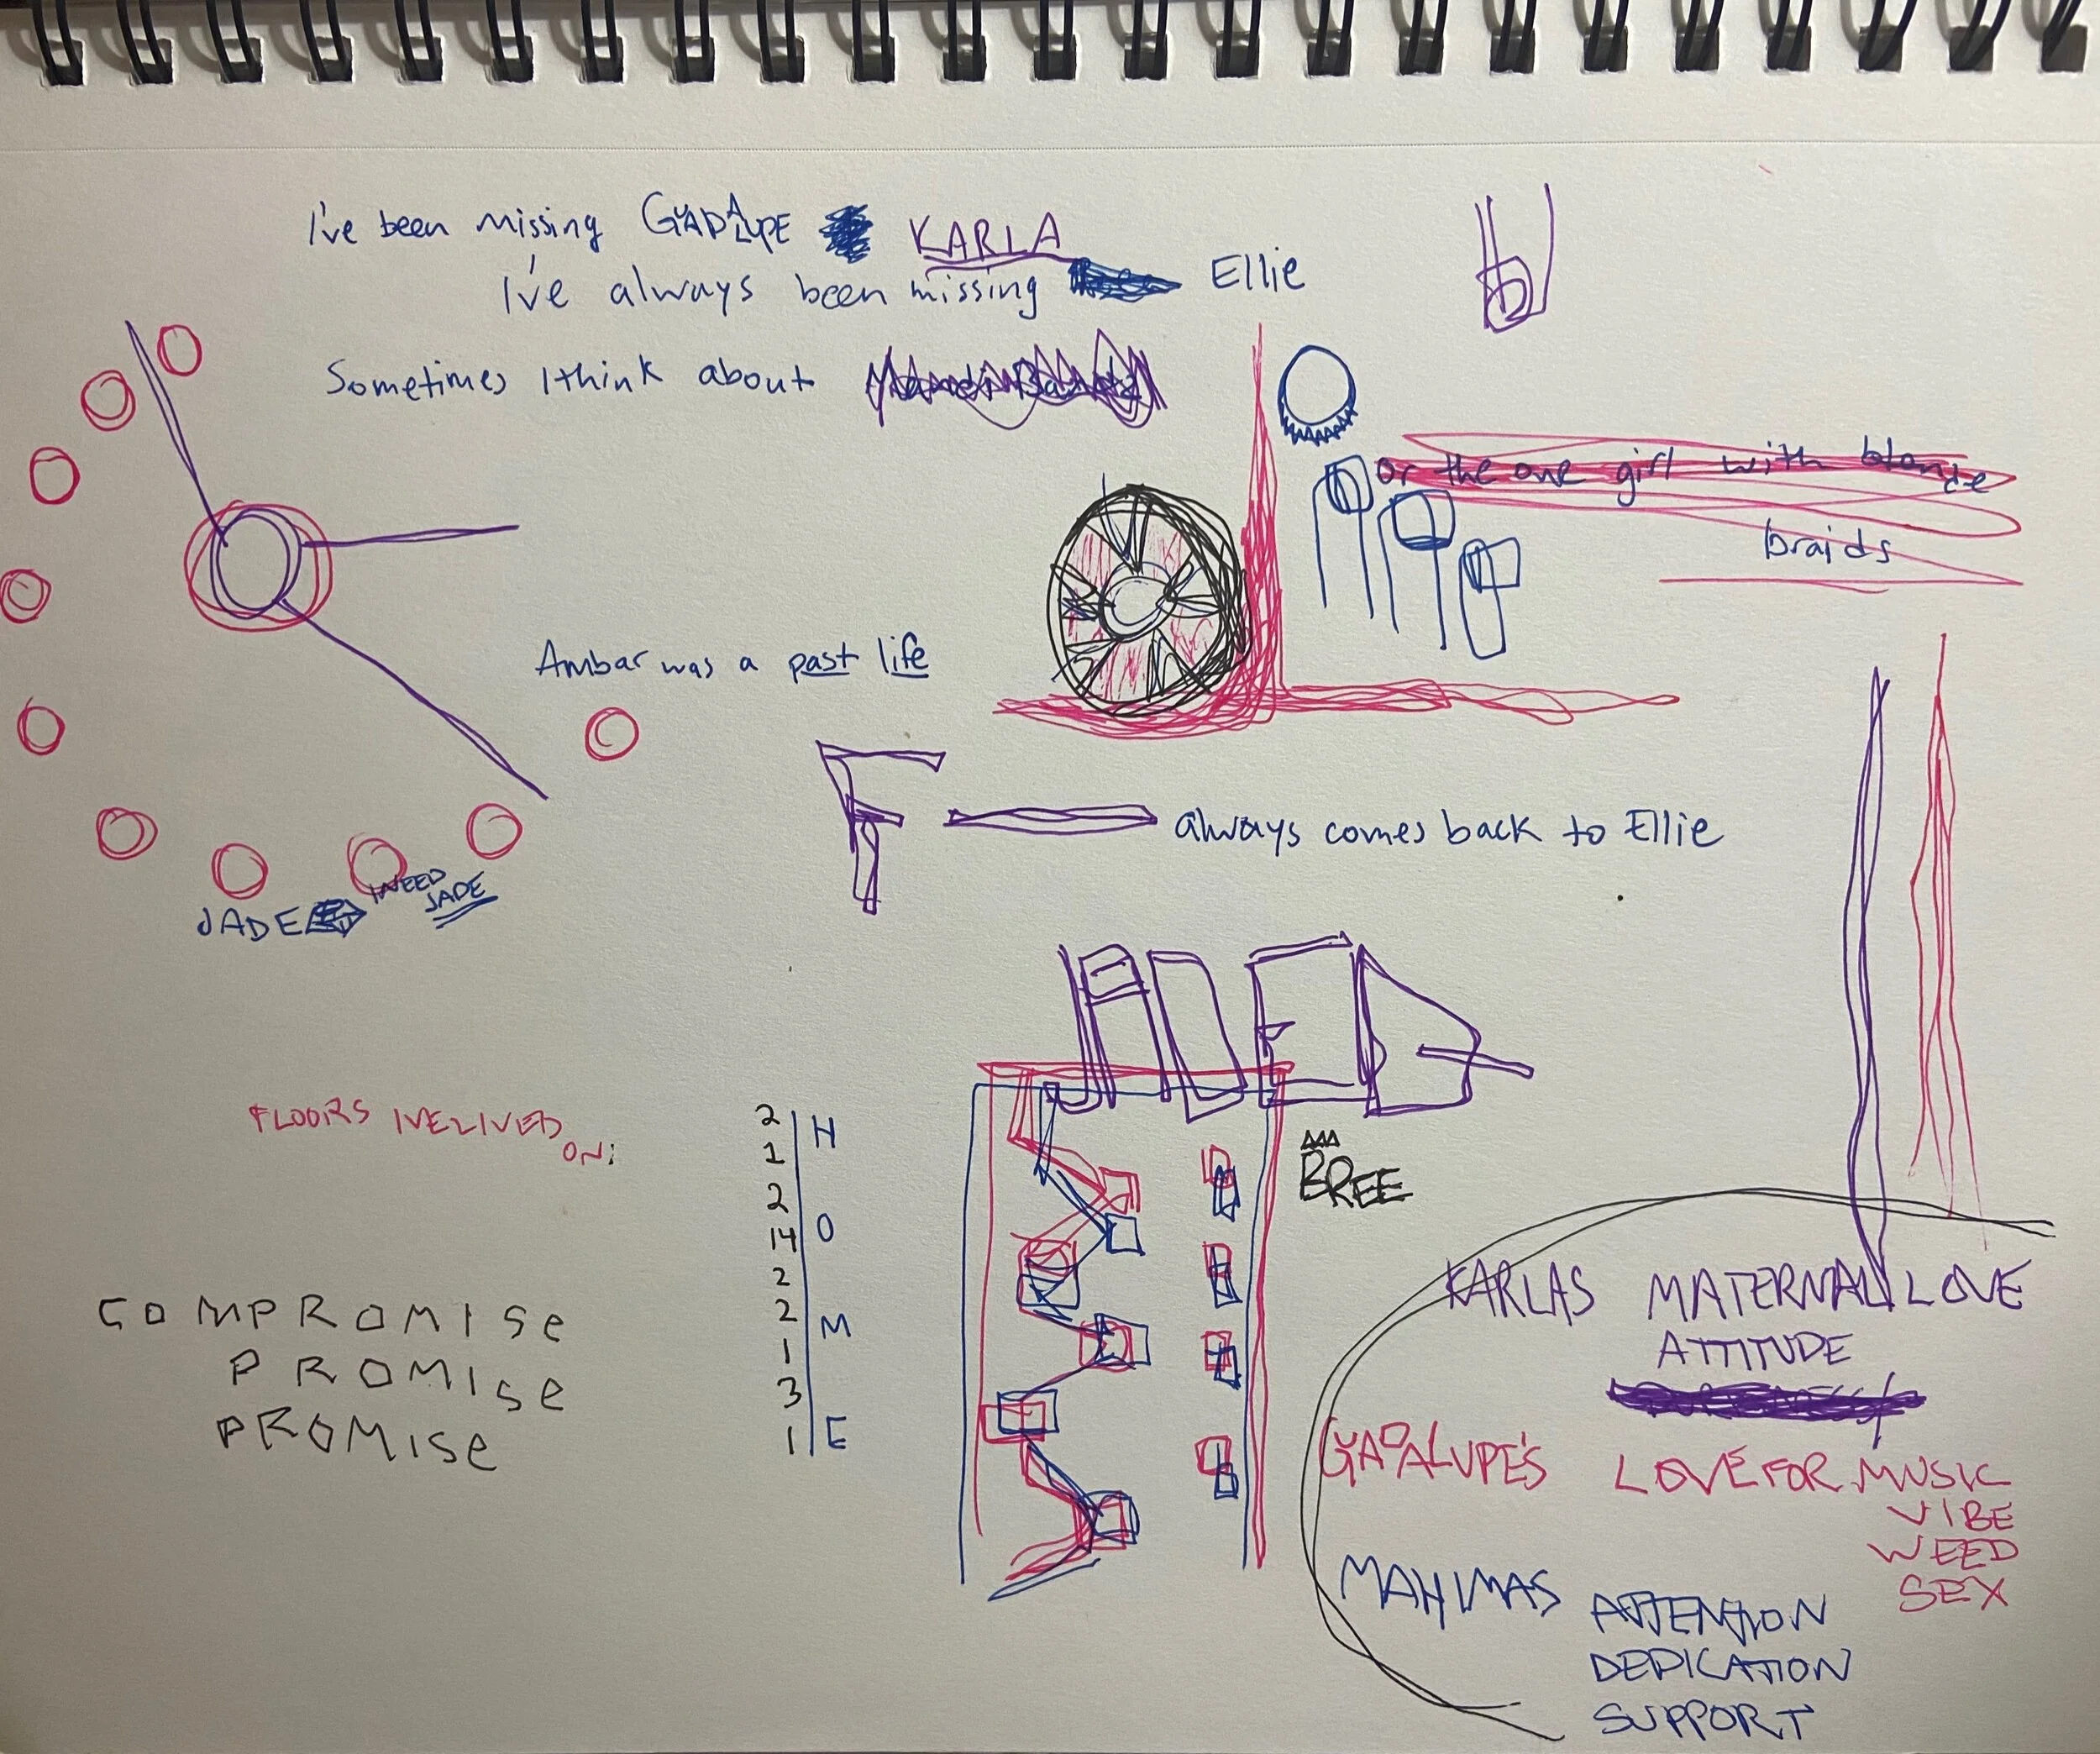 I've been missing GUADALUPE KARLA
I've always been missing Ellie
Sometimes I think about
or the one girl with blonde
braids
Ambar was a past life
F always comes back to Ellie
JADE I NEED
JADE
BREE
FLOORS IVE LIVED
ON:
2
1
2
14
2
2
1
3
1
H
O
M
E
COMPROMISe
PROMISe
PROMISe
KARLAS MATERNAL LOVE
ATTITUDE
GUADALUPE'S LOVE FOR MUSIC
VIBE
WEED
SEX
MAHIMAS ATTENTION
DEDICATION
SUPPORT